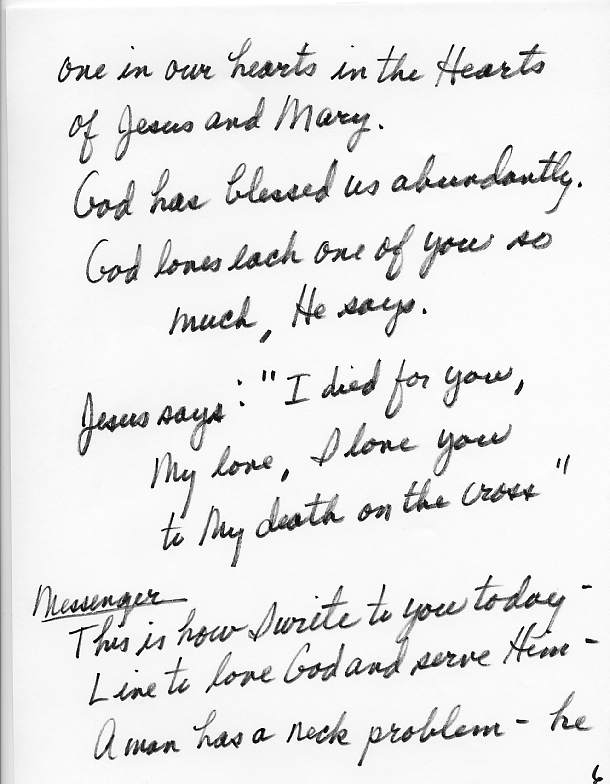 one in our hearts in the Hearts
of Jesus and Mary.
God has blessed us abundantly.
God loves each one of you so
much, He says.
Jesus says: "I died for you,
My love, I love you
to My death on the cross"
Messenger
This is how I write to you today -
Live to love God and serve Him -
A man has a neck problem - he